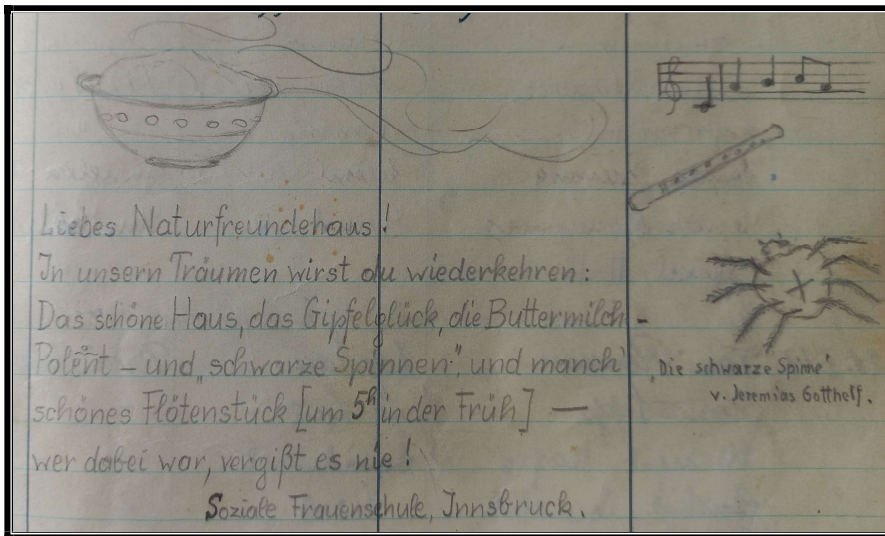 Liebes Naturfreundehaus!
In unsern Träumen wirst du wiederkehren:
Das schöne Haus, das Gipfelglück, die Buttermilch-
Polent – und „schwarze Spinnen", und manch'
schönes Flötenstück [um 5h in der Früh] —
wer dabei war, vergißt es nie!
Soziale Frauenschule, Innsbruck.
„Die schwarze Spinne"
v. Jeremias Gotthelf.